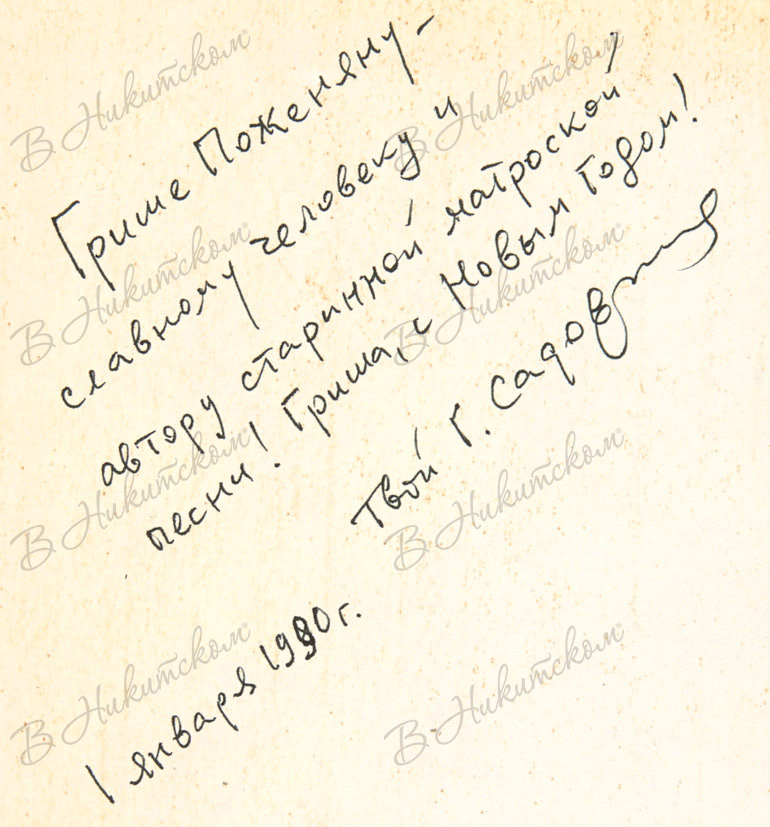 Грише Поженяну –
славному человеку и
автору старинной матроской
песни! Гриша, с Новым Годом!
Твой Г. Садовников
1 января 1990 г.
В Никитском
В Никитском
В Никитском
В Никитском
В Никитском
В Никитском
В Никитском
В Никитском